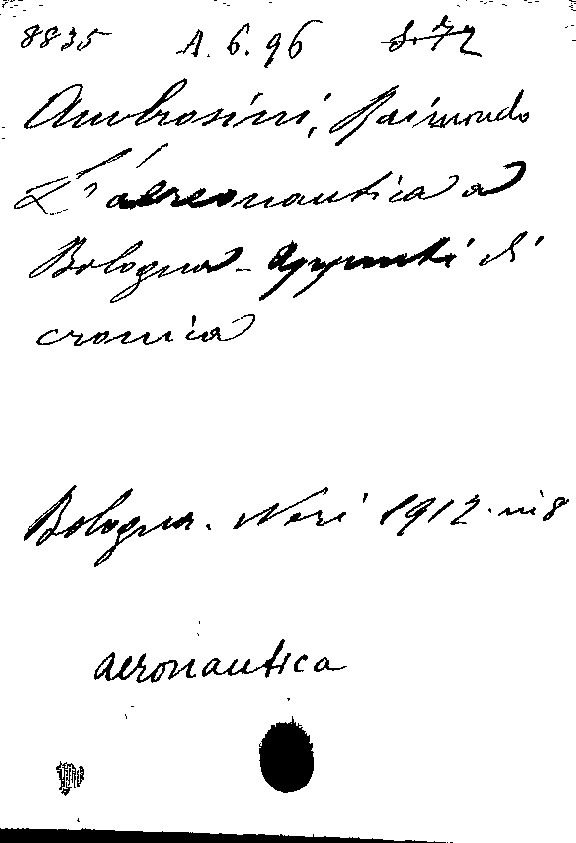 8835 A.6.96 S.72
Ambrosini, Raimondo
L'aereonautica a
Bologna - Appunti di
cronica
Bologna. Neri 1912. in 8
aeronautica